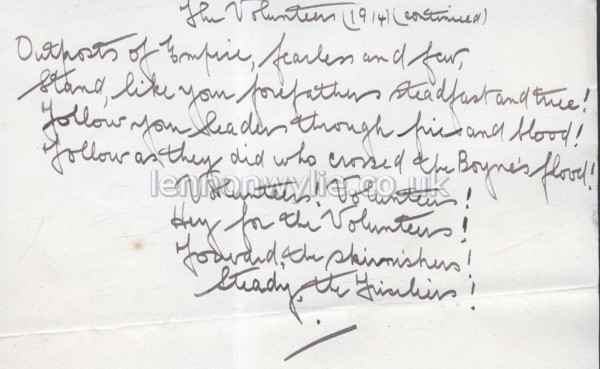 The Volunteers (1914) (continued)
Outposts of Empire, fearless and few,
Stand, like your forefathers steadfast and true!
Follow your leaders through fire and blood!
Follow as they did who crossed the Boyne's flood!
lennonwylie.co.uk
Volunteers! Volunteers!
Hey for the Volunteers!
Forward, the skirmishers!
Steady, the Fusiliers!